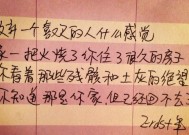 放弃一个喜欢的人什么感觉
像一把火烧了你住了很久的房子
你看着那些残骸和土灰的绝望
你知道那是你家 但已经回不去了